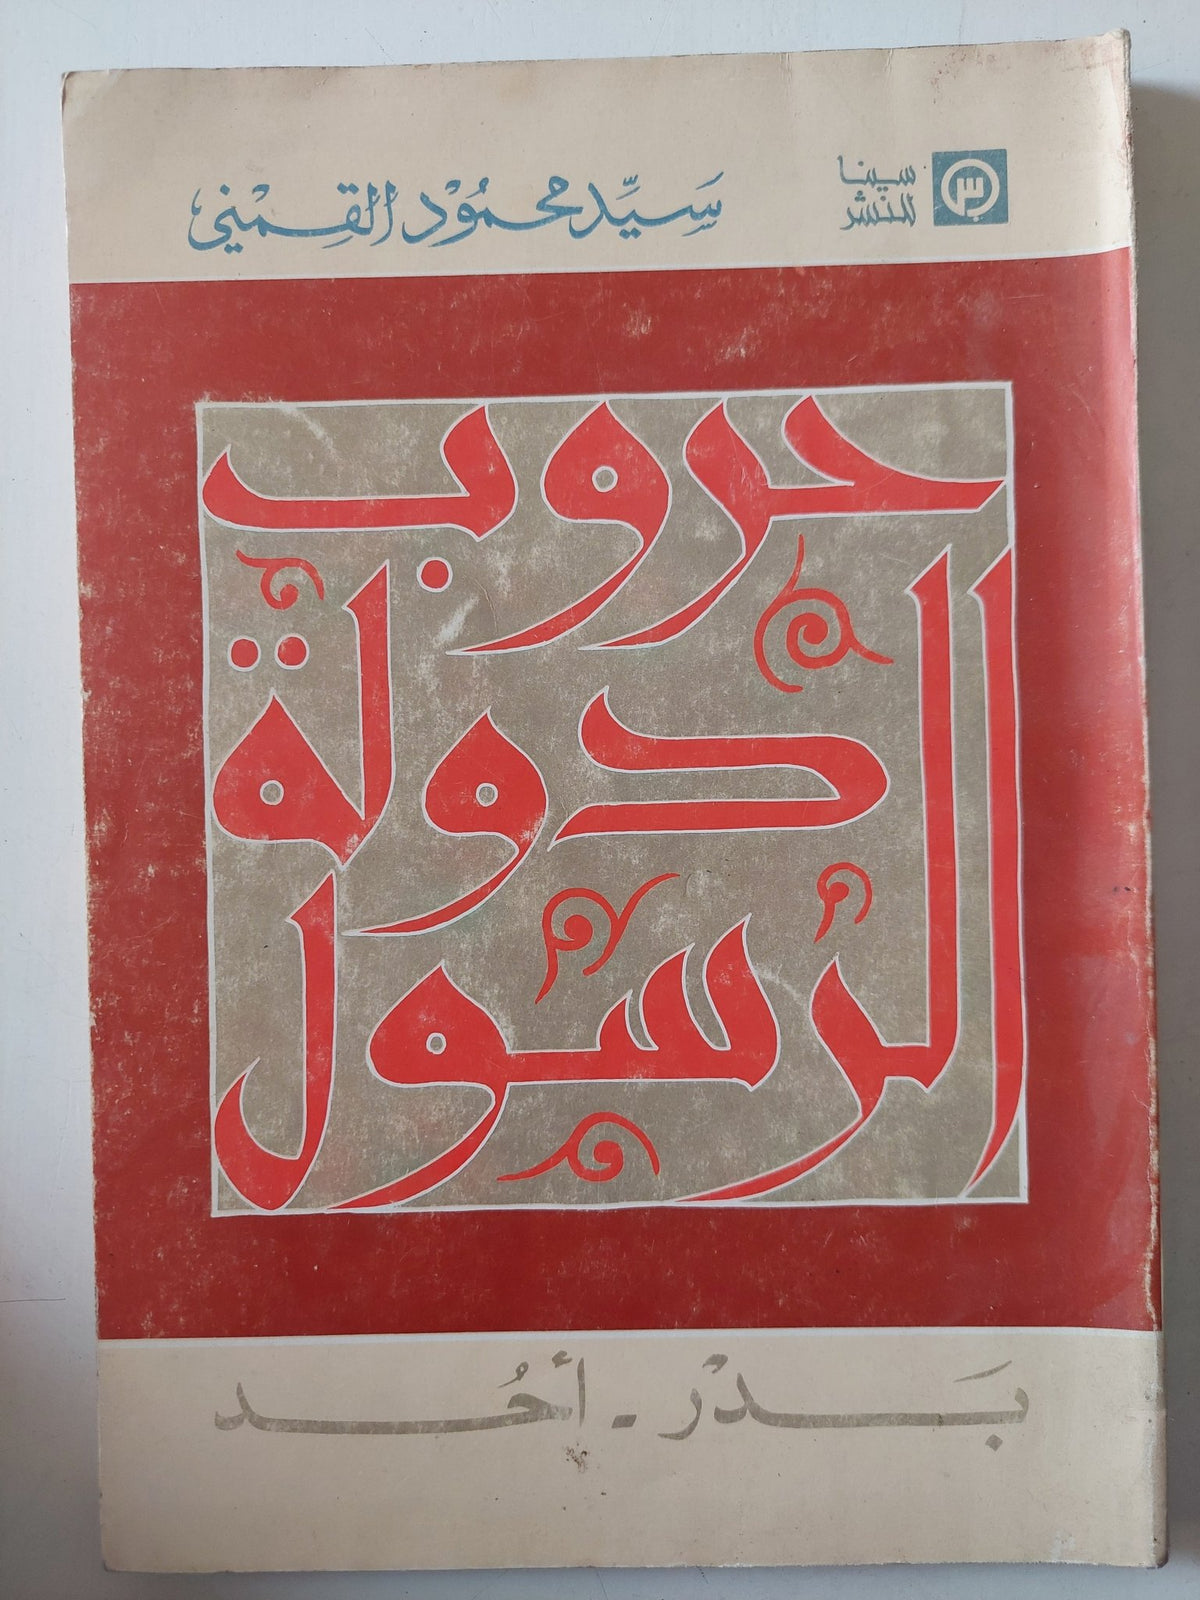 سينا
للنشر
سَيِّد محمُود القِمْني
حروب
الدولة
الرسول
بَدْر - أحُد